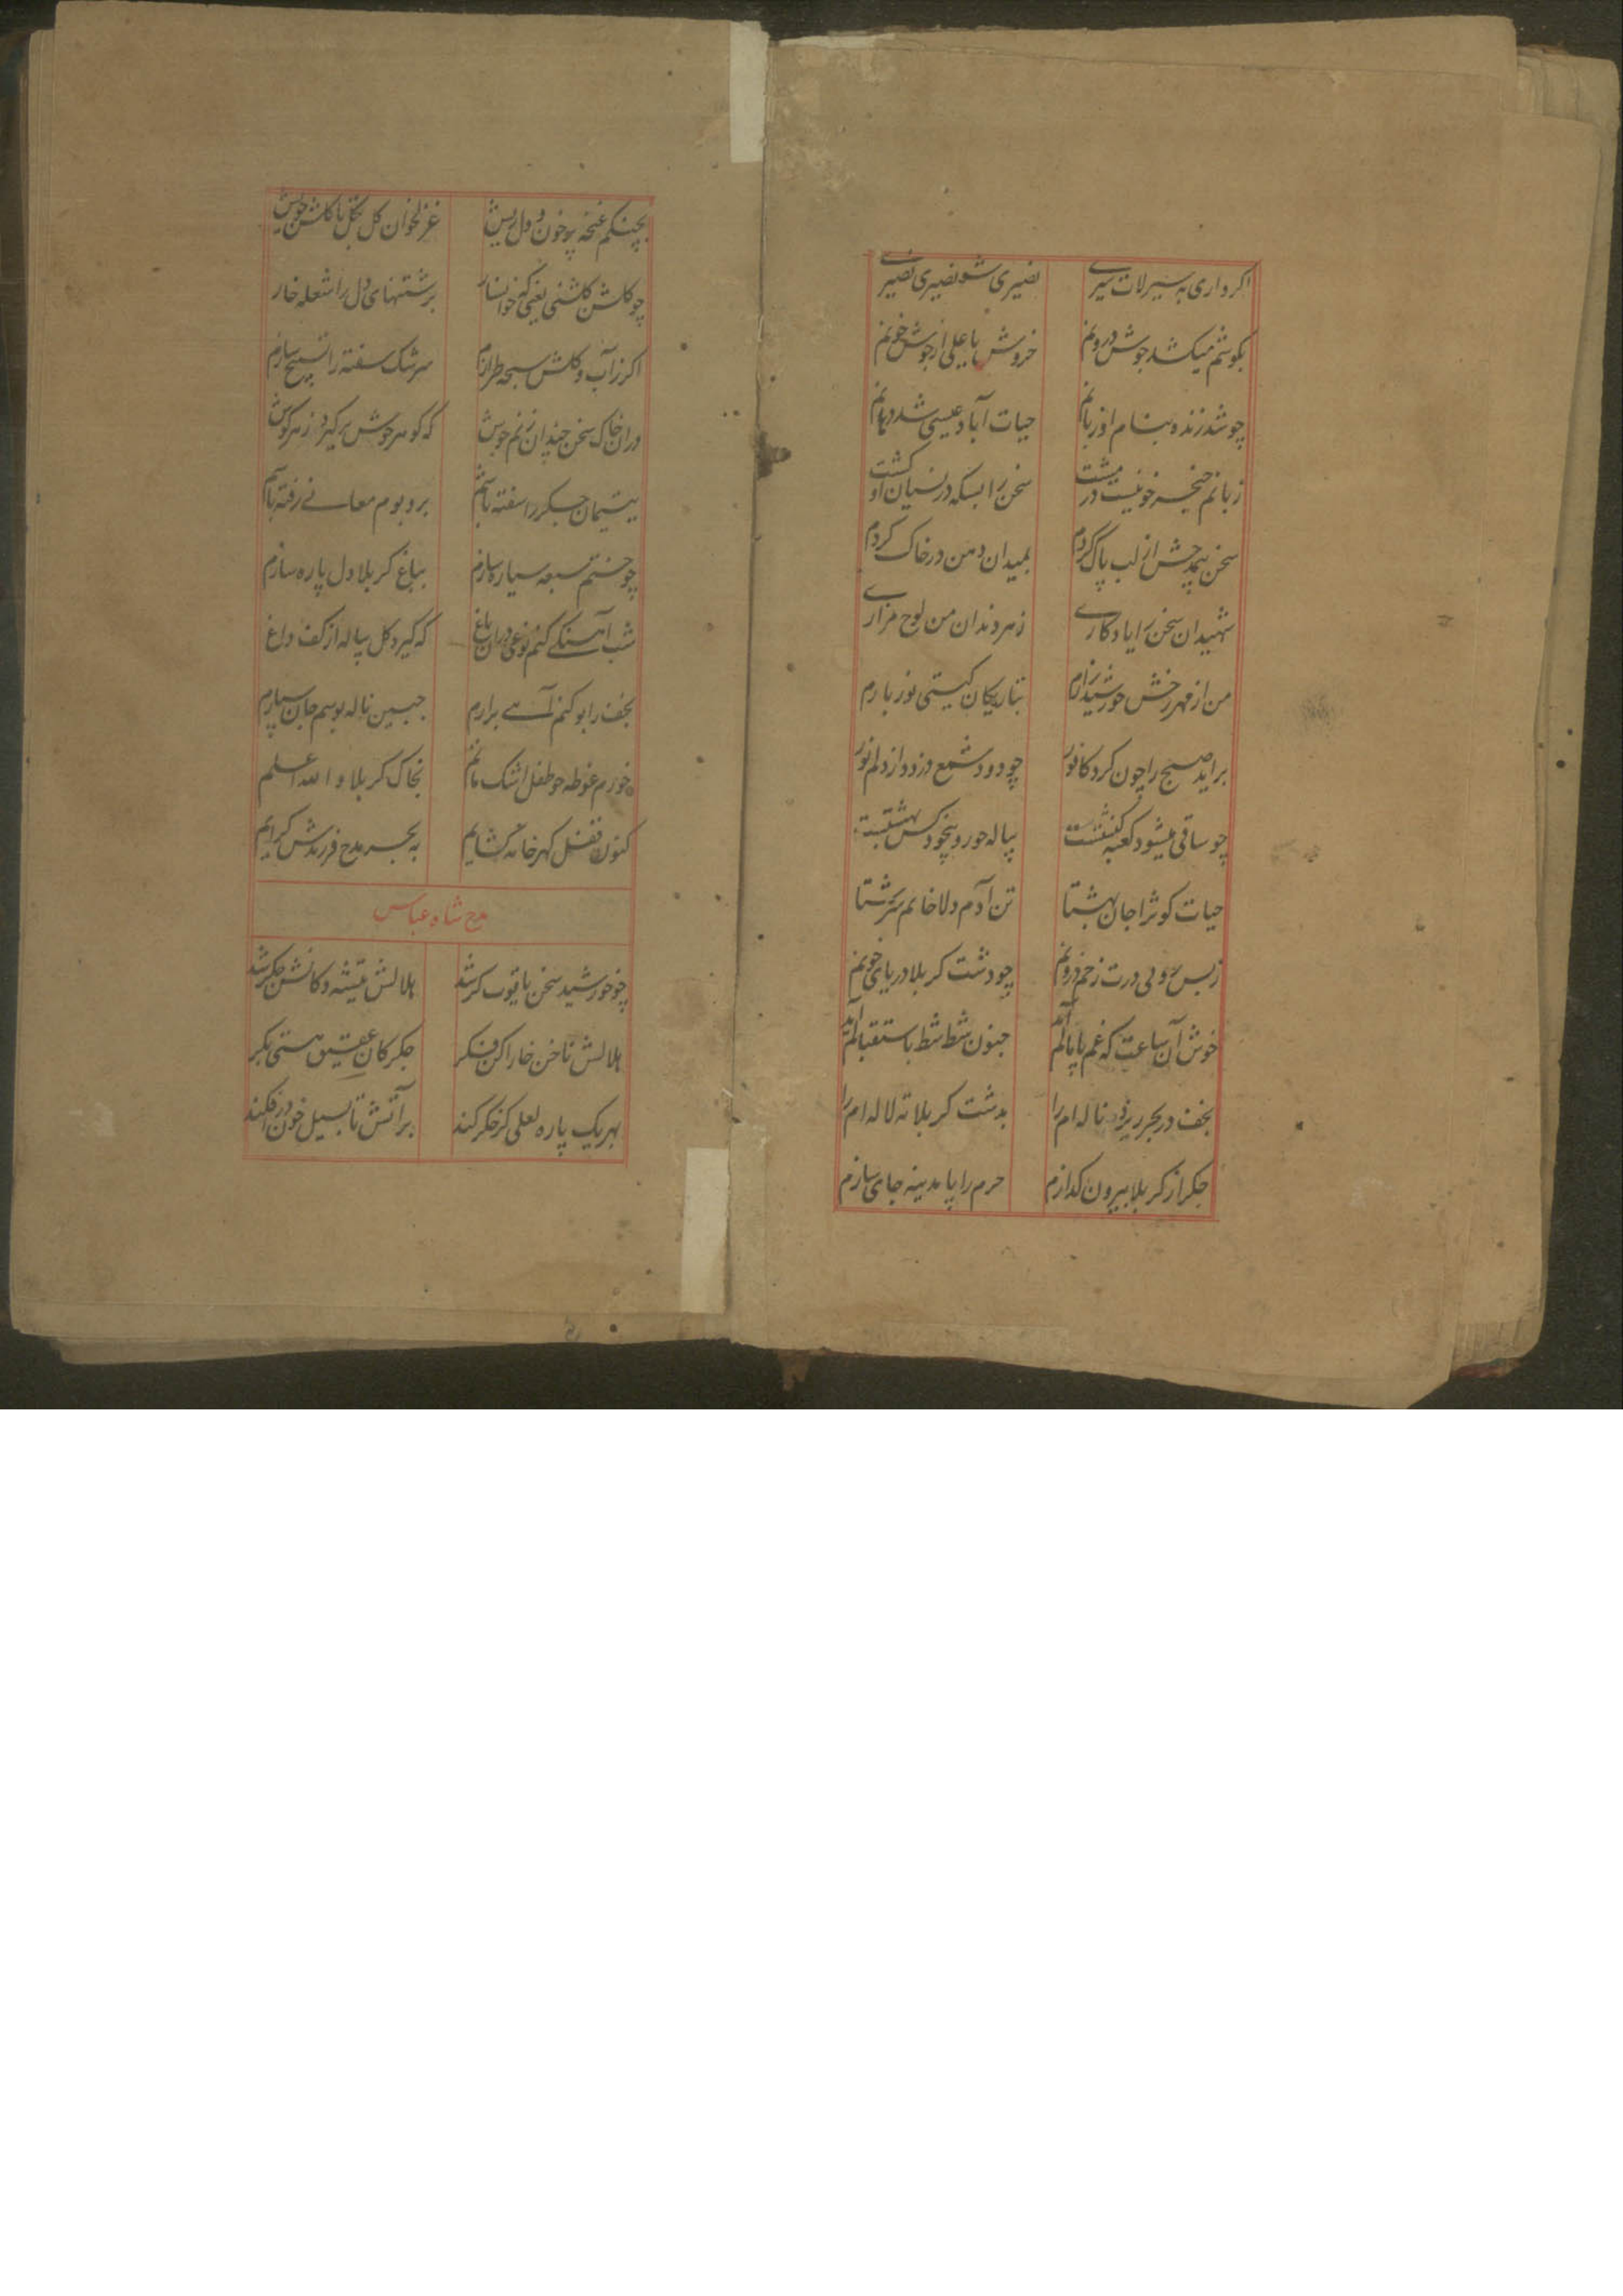 اکر داری به سیر لات سیری نصیری شو نصیری نصیری
بکوشم میکشد جوش درونم خروش یا علی از جوش خونم
چو شد زنده بنام او زبانم حیات آباد عیسی شد دهانم
زبانم خنجر خونیست در مشت سخن را بسکه در نسیان او کشت
سخن از لب پاک کردم بمیدان دهن در خاک کردم
شهیدان سخن را یادکاری ز هر دندان من لوح مزاری
من از مهر رخش خورشید زارم بتاریکان کیتی نور بارم
براید صبح را چون کرد کافور چو دود شمع دزدد از دلم نور
چو ساقی میشود کعبه کنشتست پیاله حور و بیخود کس بهشتست
حیات کوثرا جان بهشتا تن آدم ولا خانم سرشتا
ز بس وی درت زخم درونم چو دشت کربلا دریای خونم
خوش آن ساعت که غم پا پالم آید جنون شط شط باستقبالم آید
نجف در بحر ریزد ناله ام را بدشت کربلا ته لاله ام را
جکر از کربلا بیرون کدازم حرم را با مدینه جای سازم
بچنکم غنچه پر خون و دل ریش غزلخوان کل بکل تا کلشن خویش
چو کلشن کلشنی یعنی که خوانسار برشتهای دل را شعله خار
اکر ز آب و کلش سبحه طرازم سرشک سفته را تسبیح سازم
در ان خاک سخن چندان زنم جوش که کوهر جوش بر کیرد ز هر کوش
یتیمان جکر را سفته باشم بر و بوم معانی رفته باشم
چو ختم سبعه سیاره سازم بباغ کربلا دل پاره سازم
شب آهنکی کنم نوعی در ان باغ که کیرد کل پیاله از کف داغ
نجف را بو کنم آهی برارم جبین ناله بوسم جان سپارم
خورم غوطه چو طفل اشک ماتم بخاک کربلا والله اعلم
کنون قفل کهر خانه کشایم به بحر مدح فرزندش کرایم
مدح شاه عباس
چو خورشید سخن یاقوت کر شد هلالش تیشه و کانش جکر شد
هلالش ناخن خارا کن فکر جکر کان عقیق هستی بکر
بهر یک پاره لعلی کز جکر کند بر آتش تا بسیل خون در افکند